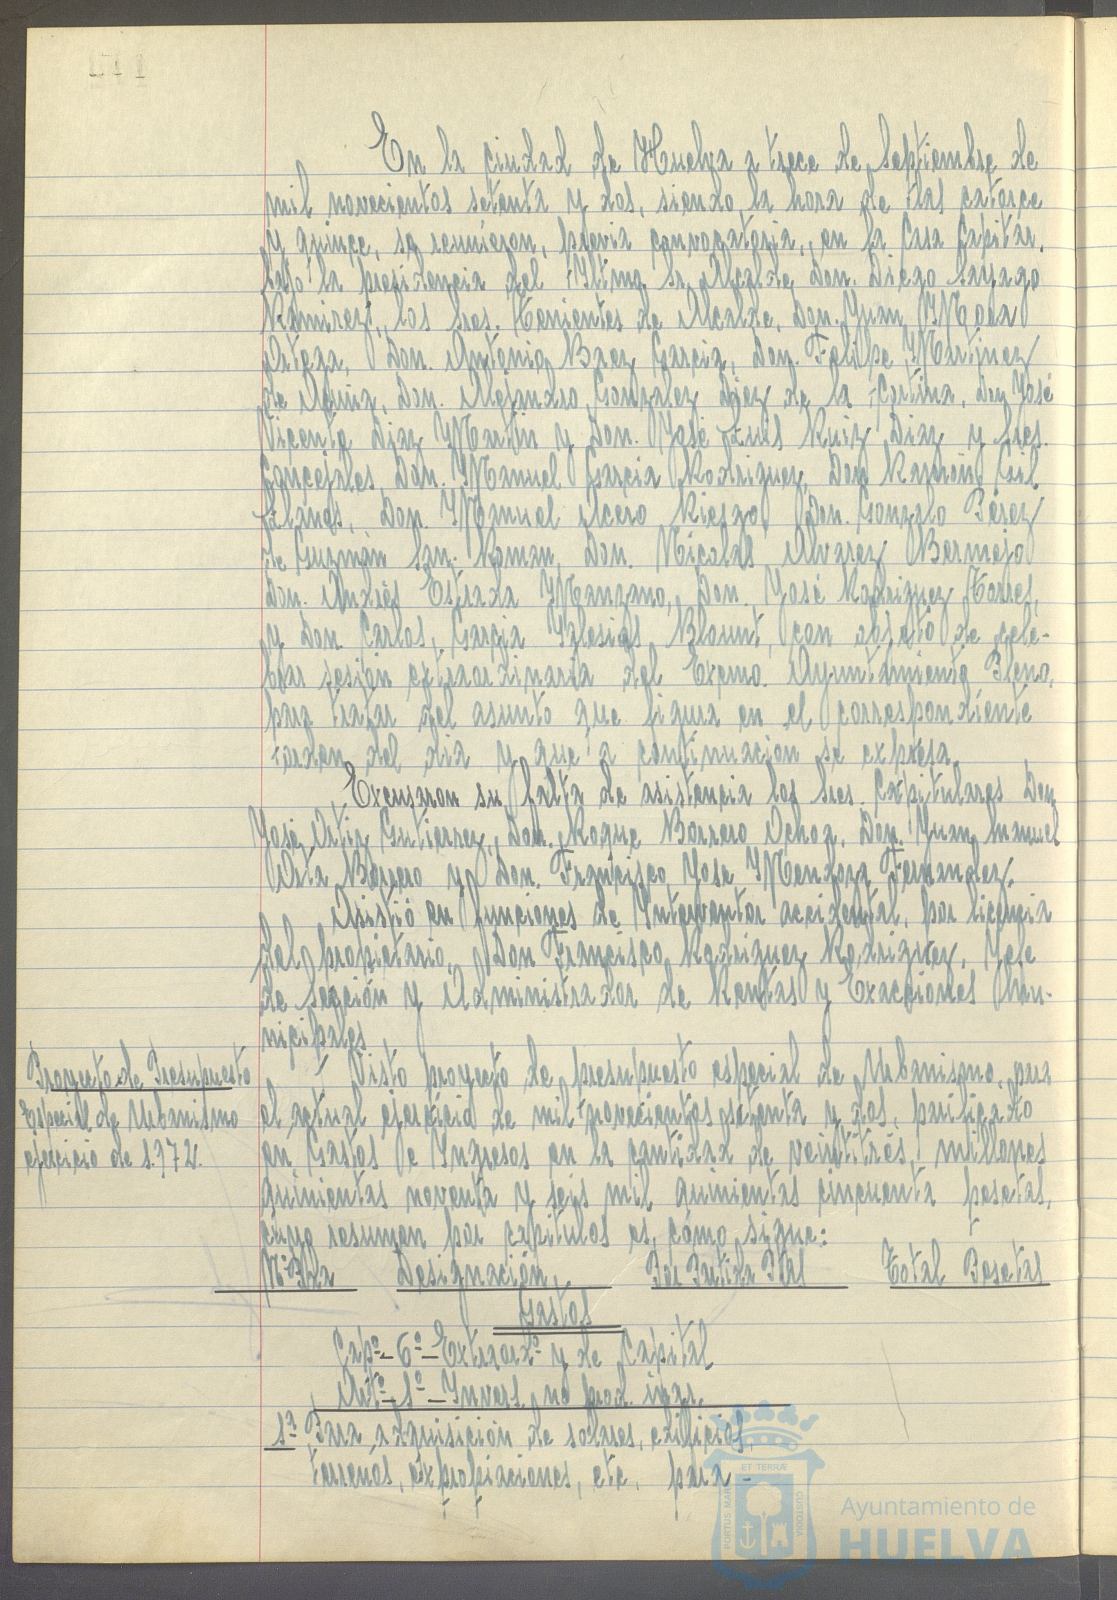 En la ciudad de Huelva a trece de Septiembre de
mil novecientos setenta y dos, siendo la hora de las catorce
y quince, se reunieron, previa convocatoria, en la Casa Capitular,
bajo la presidencia del Iltmo. Sr. Alcalde Don. Diego Sayago
Ramirez, los Sres. Tenientes de Alcalde, Don. Juan Mora
Ortega, Don. Antonio Baez Garcia, Don. Felipe Martinez
de Don. Alejandro Gonzalez Diez de la Cortina, Don José
Vicente Diaz Martin y Don. José Luis Ruiz Diaz y Sres.
Concejales, Don. Manuel Garcia Rodriguez, Don Ramón Gil
Llanos, Don. Manuel Acero Riesgo, Don. Gonzalo Pérez
de Guzmán San-Roman, Don. Nicolas Alvarez Bermejo
Don. Andrés Estrada Manzano, Don. José Rodriguez Torres,
y Don Carlos Garcia Iglesias Blount, con objeto de cele-
brar sesión extraordinaria del Excmo. Ayuntamiento Pleno,
para tratar del asunto que figura en el correspondiente
orden del dia y que a continuación se expresa.
Excusaron su falta de asistencia los Sres. Capitulares Don
José Ortiz Gutierrez, Don. Roque Borrero Ochoa, Don. Juan Manuel
Orta Borrero y Don. Francisco Jose Mendoza Fernandez.
Asistió en funciones de Interventor accidental, por licencia
del propietario, Don Francisco Rodriguez Rodriguez, Jefe
de Sección y Administrador de Rentas y Exacciones Mu-
nicipales
Proyecto de Presupuesto
Especial de Urbanismo
ejercicio de 1.972.
Visto proyecto de presupuesto especial de Urbanismo, para
el actual ejercicio de mil novecientos setenta y dos,
en Gastos e Ingresos en la cantidad de veintitrés millones
quinientas noventa y seis mil quinientas cincuenta pesetas,
cuyo resumen por capitulos es cómo sigue:
Nº Pda Designación. Por Partida Ptas Total Pesetas
Gastos
Capº-6º-Extraordº y de Capital
Artº-1º-Invers. no prod. ingr.
1ª Para adquisición de solares, edificios,
terrenos, expropiaciones, etc. para-
PORTUS MARIS ET TERRÆ CUSTODIA
Ayuntamiento de
HUELVA